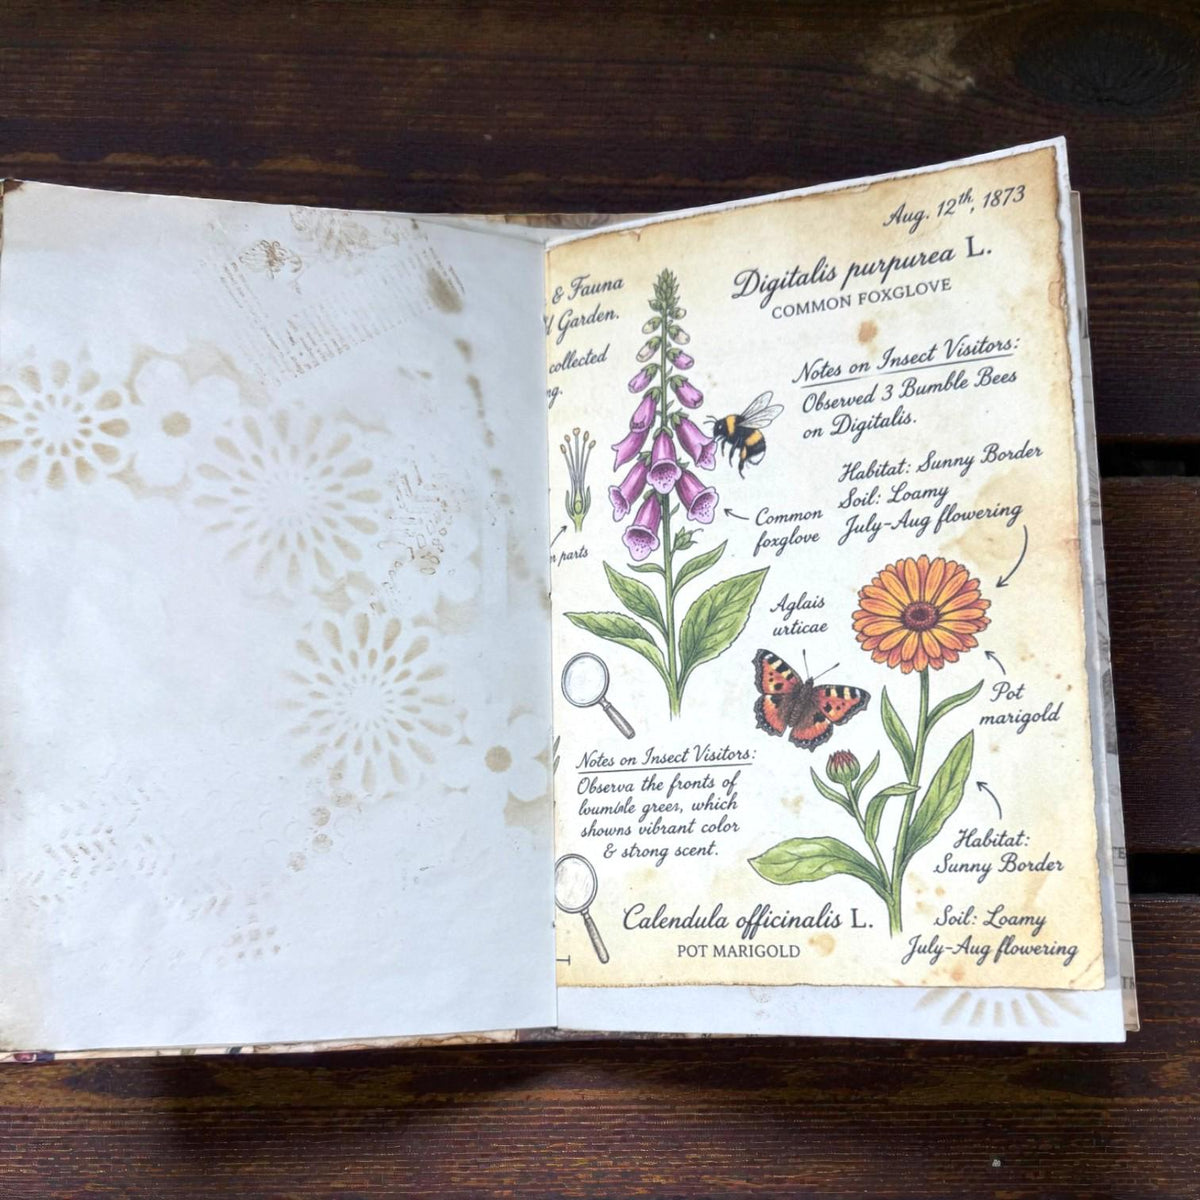 Aug. 12th, 1873
& Fauna
Garden.
collected
Digitalis purpurea L.
COMMON FOXGLOVE
Notes on Insect Visitors:
Observed 3 Bumble Bees
on Digitalis.
Habitat: Sunny Border
Soil: Loamy
July-Aug flowering
Common
foxglove
parts
Aglais
urticae
Pot
marigold
Notes on Insect Visitors:
Observa the fronts of
greer, which
showns vibrant color
& strong scent.
Habitat:
Sunny Border
Calendula officinalis L.
POT MARIGOLD
Soil: Loamy
July-Aug flowering